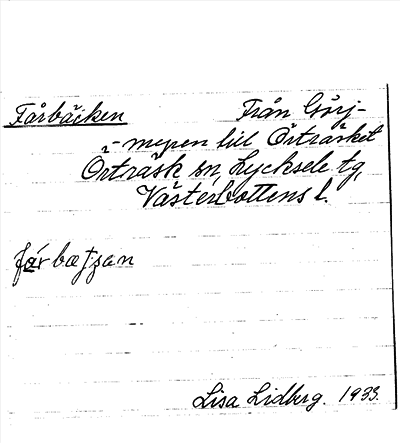 Fårbäcken Från Görj-
myren till Örträsket
Örträsk sn, Lycksele tg,
Västerbottens l.
Lisa Lidberg. 1933.